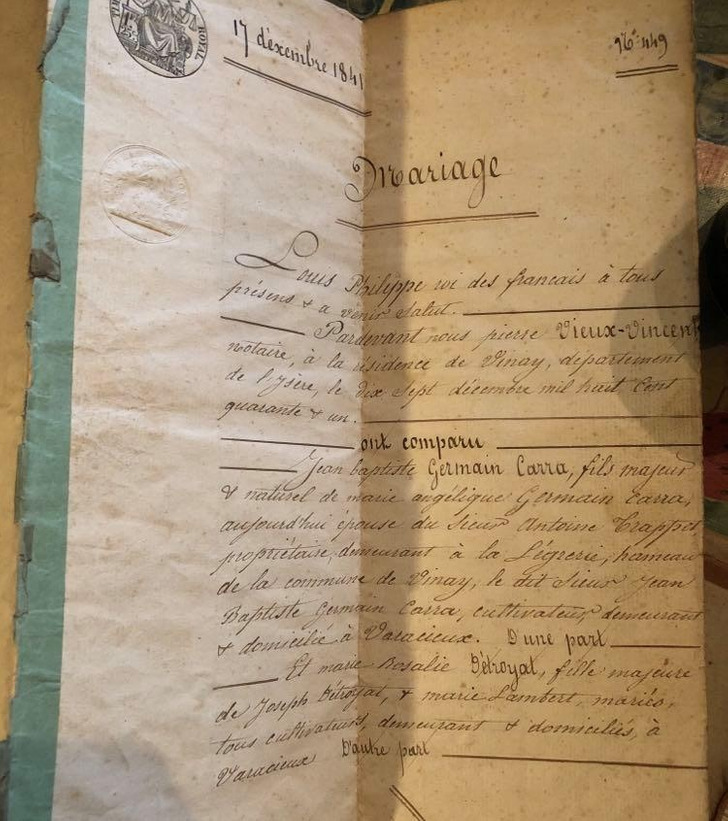 ROYAL
17 décembre 1841
N° 449
Mariage
Louis Philippe roi des français à tous
présens & a venir Salut.
Pardevant nous pierre Vieux-Vincent
notaire, à la résidence de Vinay, département
de l'ysère, le dix sept décembre mil huit Cent
quarante & un.
ont comparu
Jean baptiste Germain Carra, fils majeur
& naturel de marie angélique Germain Carra,
aujourd'hui épouse du sieur Antoine Trappet
propriétaire, demeurant à la Légrerie, hameau
de la commune de Vinay, le dit Sieur Jean
Baptiste Germain Carra, cultivateur, demeurant
& domicilié à Varacieux. D'une part
Et marie Rosalie Détroyat, fille majeure
de Joseph Détroyat, & marie Lambert, mariés,
tous cultivateurs, demeurant & domiciliés, à
Varacieux D'autre part